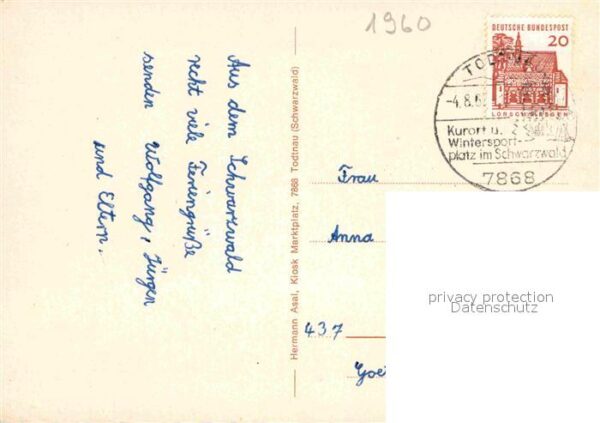 1960
DEUTSCHE BUNDESPOST
20
LORSCH/HESSEN
TODTNAU
-4.8.6
Kurort u.
Wintersport-
platz im Schwarzwald
7868
Aus dem Schwarzwald
recht viele Feriengrüße
senden Wolfgang, Jürgen
und Eltern.
Hermann Asal, Kiosk Marktplatz, 7868 Todtnau (Schwarzwald)
Frau
Anna
437
privacy protection
Datenschutz